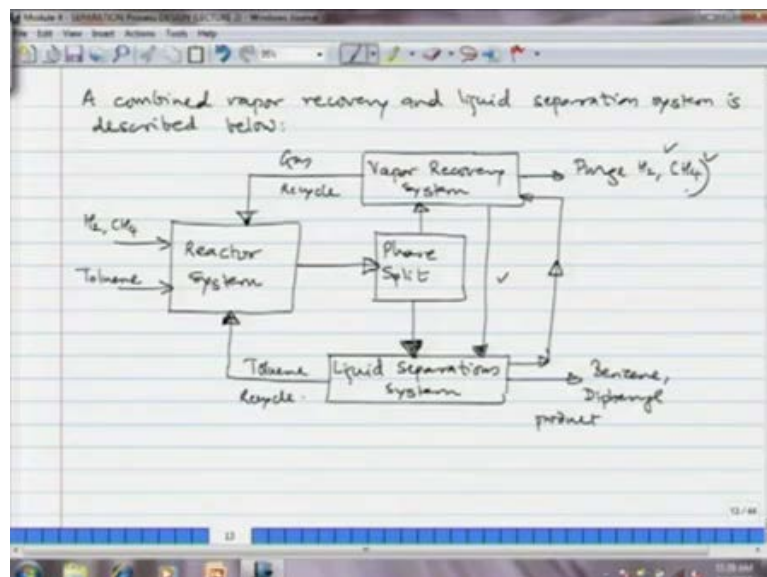 Module 4 - SEPARATION Process DESIGN (LECTURE 2) - Windows Journal
File Edit View Insert Actions Tools Help
A combined vapor recovery and liquid separation system is
described below:
Gas
Recycle
Vapor Recovery
System
Purge H2, CH4
H2, CH4
Toluene
Reactor
System
Phase
Split
Toluene
Recycle
Liquid Separations
System
Benzene,
Diphenyl
product
13